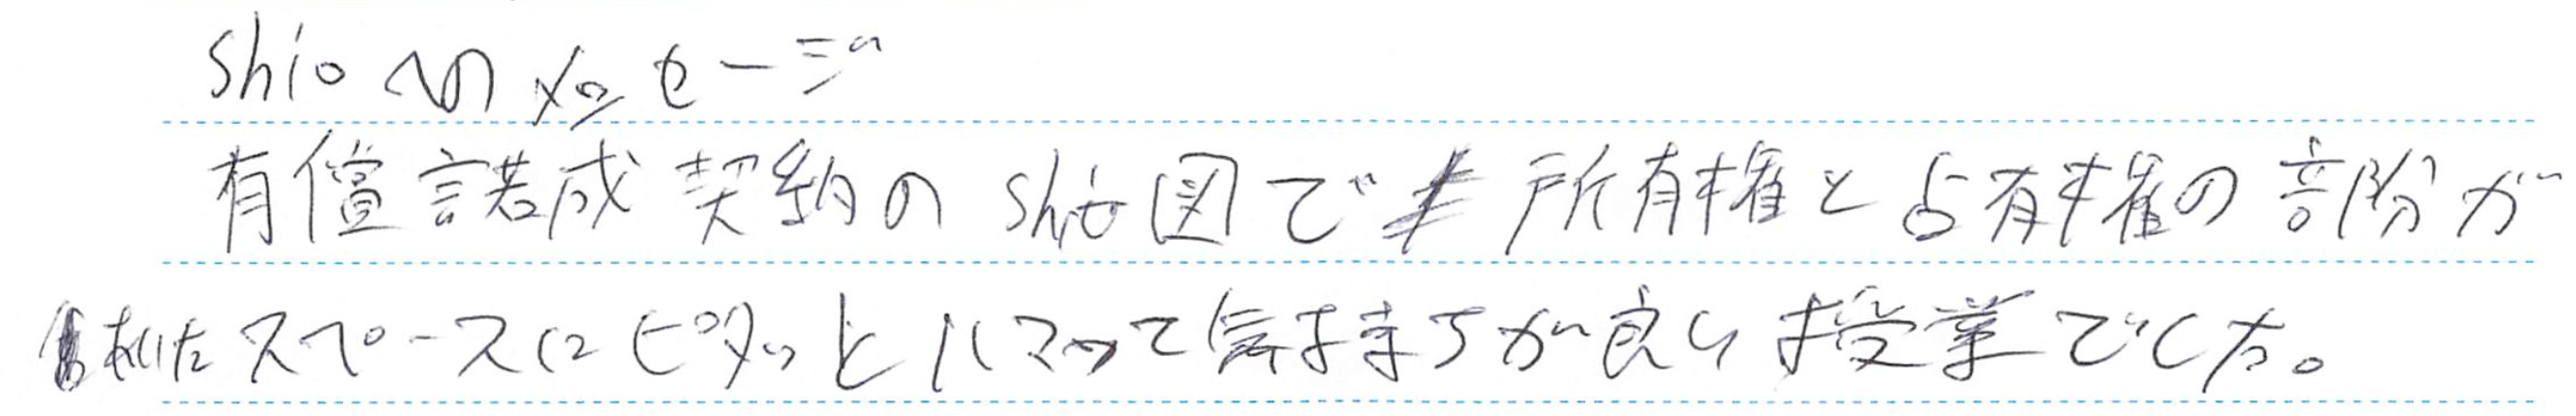 shioへのメッセージ
有償諾成契約のshio図で所有権と占有権の部分が
あいたスペースにピタッとハマって気持ちが良い授業でした。